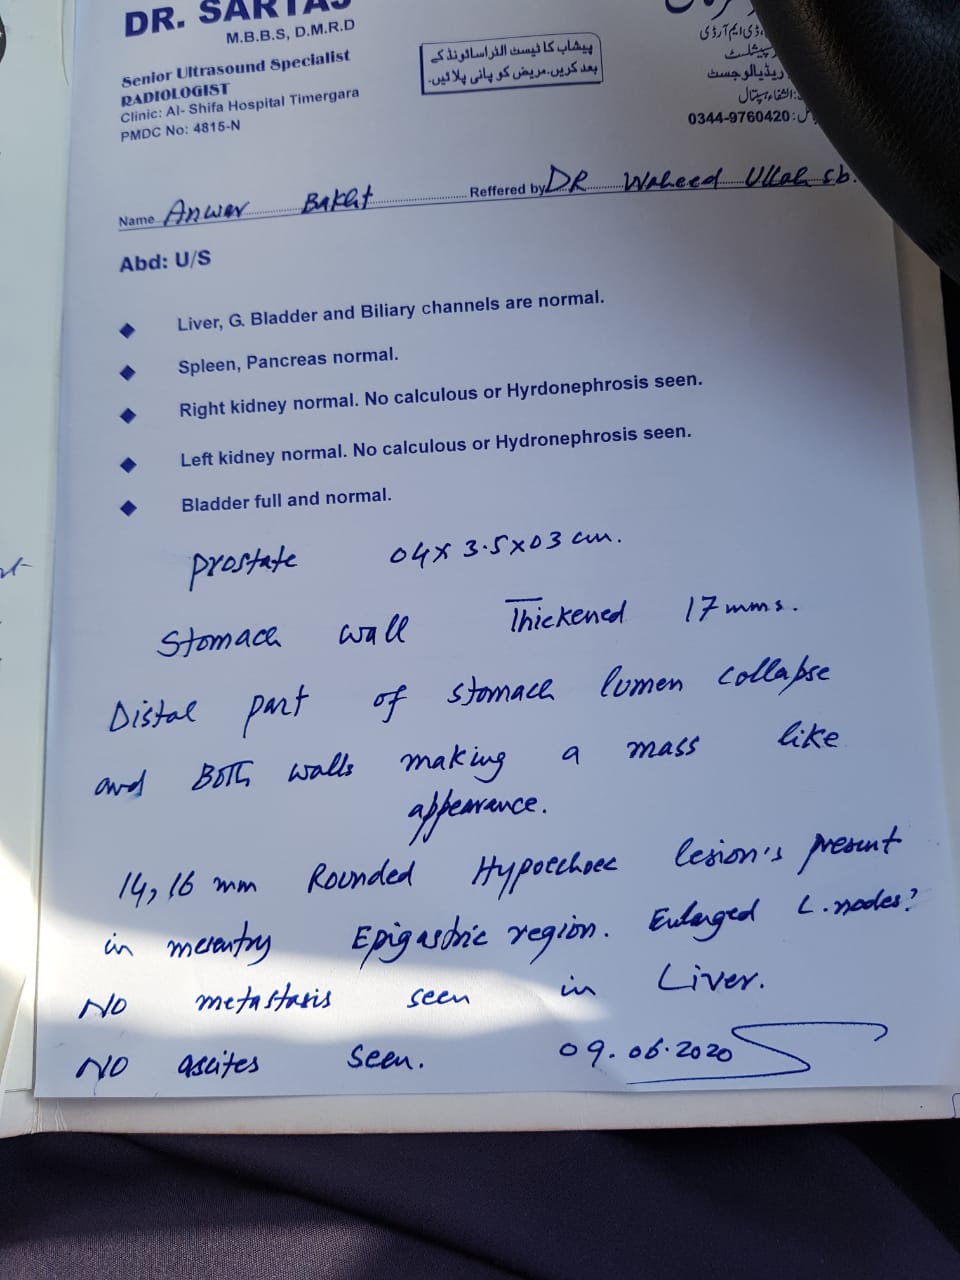 DR. SARTAJ
M.B.B.S, D.M.R.D
Senior Ultrasound Specialist
RADIOLOGIST
Clinic: Al- Shifa Hospital Timergara
PMDC No: 4815-N
پیشاب کا ٹیسٹ الٹراساؤنڈ کے
بعد کریں۔ مریض کو پانی پلائیں۔
ڈی ایم آر ڈی
سپیشلسٹ
ریڈیالوجسٹ
الشفاء ہسپتال
0344-9760420:
Name Anwar Bakht Reffered by DR Waheed Ullah sb.
Abd: U/S
Liver, G. Bladder and Biliary channels are normal.
Spleen, Pancreas normal.
Right kidney normal. No calculous or Hyrdonephrosis seen.
Left kidney normal. No calculous or Hydronephrosis seen.
Bladder full and normal.
prostate 04x 3.5x03 cm.
Stomach wall Thickened 17 mms.
Distal part of stomach lumen collapse
and Both walls making a mass like
appearance.
14, 16 mm Rounded Hypoechoec lesion's present
in mesentry Epigastric region. Enlarged L. nodes?
No metastasis seen in Liver.
No ascites seen. 09.06.2020